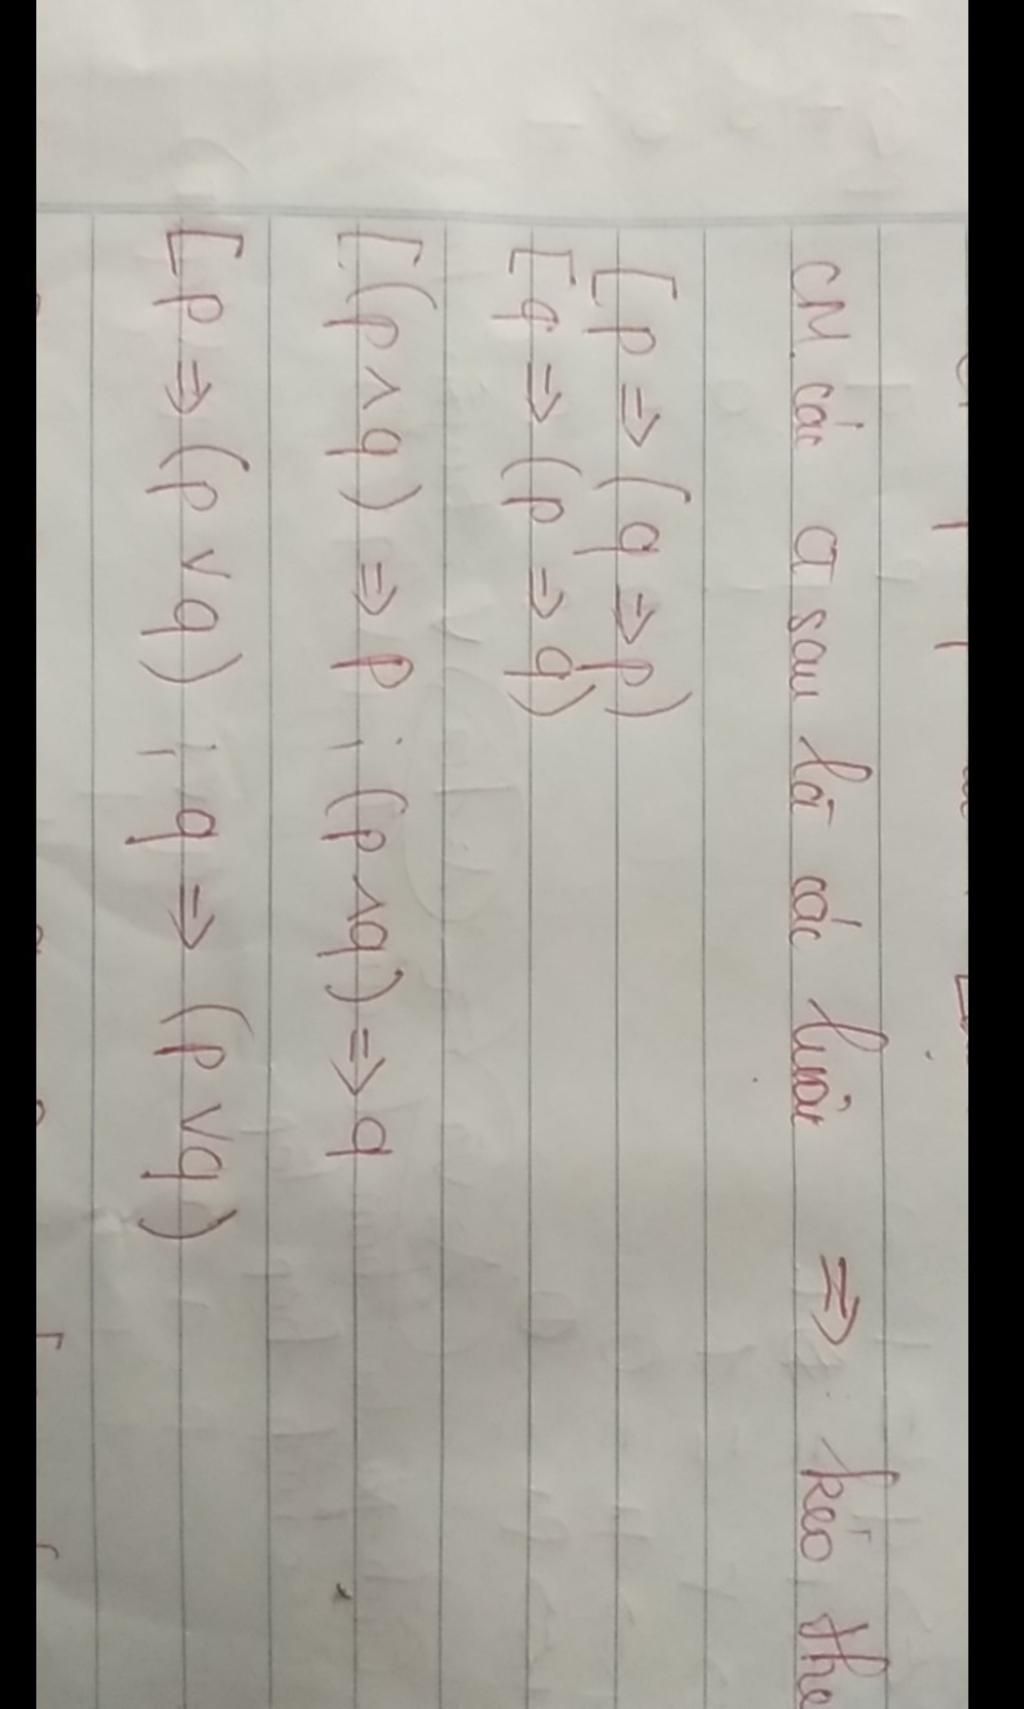 CM các a sau là các luật ⇒ kéo the
[ p ⇒ (q ⇒ p)
[ q ⇒ (p ⇒ q)
[ (p ∧ q) ⇒ p ; (p ∧ q) ⇒ q
[ p ⇒ (p ∨ q) ; q ⇒ (p ∨ q)